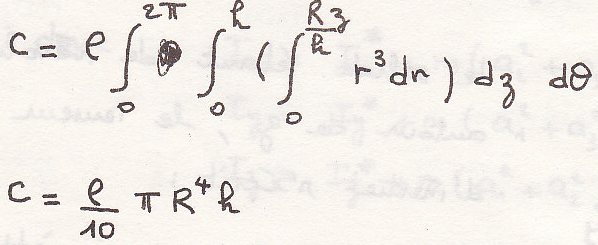 C = ρ ∫₀^{2π} ∫₀^{h} ( ∫₀^{Rz/h} r³ dr ) dz dθ
C = ρ/10 π R⁴ h